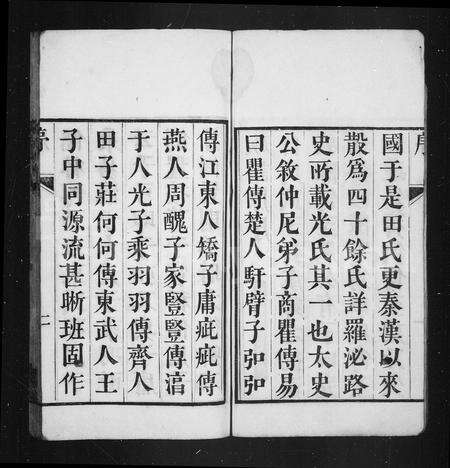 序
國于是田氏更秦漢以來
散爲四十餘氏詳羅泌路
史所載光氏其一也太史
公敘仲尼弟子商瞿傳易
曰瞿傳楚人馯臂子弘弘
傳江東人矯子庸疵疵傳
燕人周醜子家豎豎傳淄
于人光子乘羽羽傳齊人
田子莊何何傳東武人王
子中同源流甚晰班固作
序
二